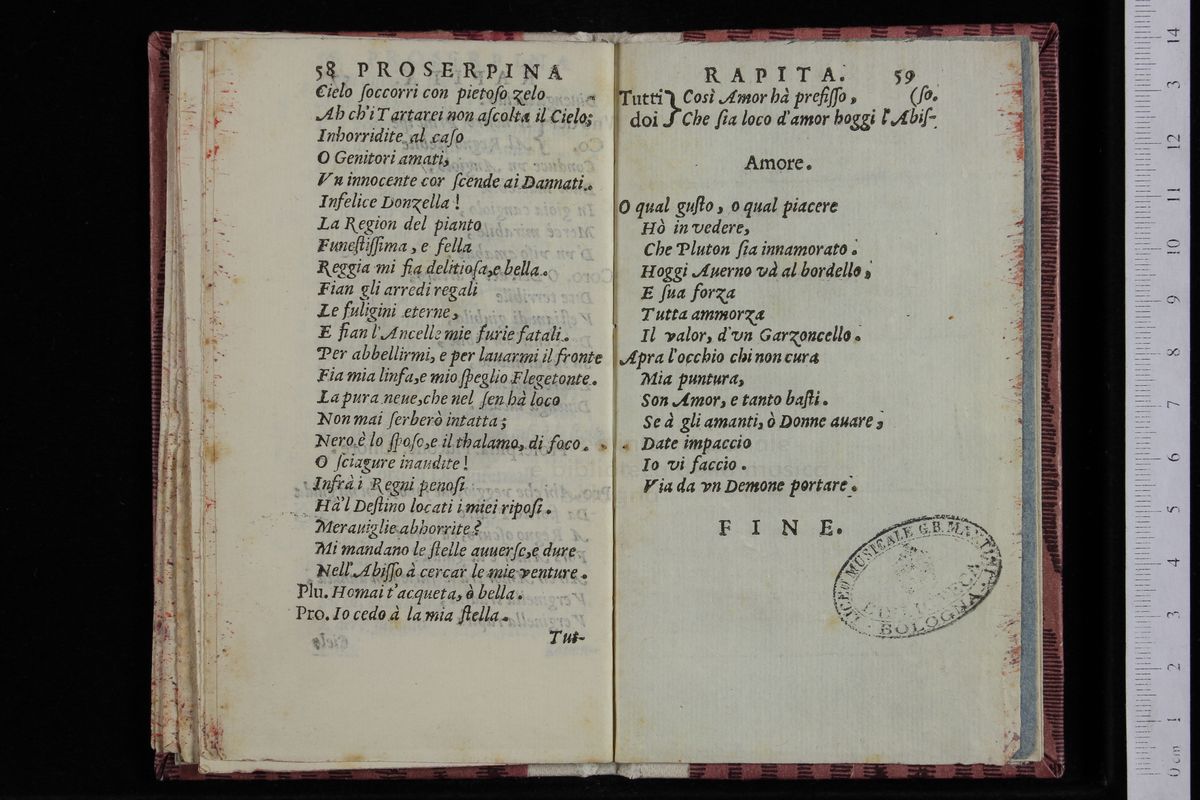 58 PROSERPINA
Cielo ſoccorri con pietoſo zelo
Ah ch'i Tartarei non aſcolta il Cielo;
Inhorridite al caſo
O Genitori amati,
Vn innocente cor ſcende ai Dannati.
Infelice Donzella!
La Region del pianto
Funeſtiſſima, e fella
Reggia mi fia delitioſa, e bella.
Fian gli arredi regali
Le fuligini eterne,
E fian l'Ancelle mie furie fatali.
Per abbellirmi, e per lauarmi il fronte
Fia mia linfa, e mio ſpeglio Flegetonte.
La pura neue, che nel ſen hà loco
Non mai ſerberò intatta;
Nero è lo ſpoſo, e il thalamo, di foco.
O ſciagure inaudite!
Infrà i Regni penoſi
Hà'l Deſtino locati i miei ripoſi.
Merauiglie abhorrite?
Mi mandano le ſtelle auuerſe, e dure
Nell'Abiſſo à cercar le mie venture.
Plu. Homai t'acqueta, ò bella.
Pro. Io cedo à la mia ſtella.
Tut-
RAPITA. 59
Tutti } Così Amor hà prefiſſo, (ſo.
doi } Che ſia loco d'amor hoggi l'Abiſ-
Amore.
O qual guſto, o qual piacere
Hò in vedere,
Che Pluton ſia innamorato.
Hoggi Auerno và al bordello,
E ſua forza
Tutta ammorza
Il valor, d'vn Garzoncello.
Apra l'occhio chi non cura
Mia puntura,
Son Amor, e tanto baſti.
Se à gli amanti, ò Donne auare,
Date impaccio
Io vi faccio.
Via da vn Demone portare.
FINE.
LICEO MUSICALE G.B. MARTINI
BIBLIOTECA
BOLOGNA
0 cm 1 2 3 4 5 6 7 8 9 10 11 12 13 14